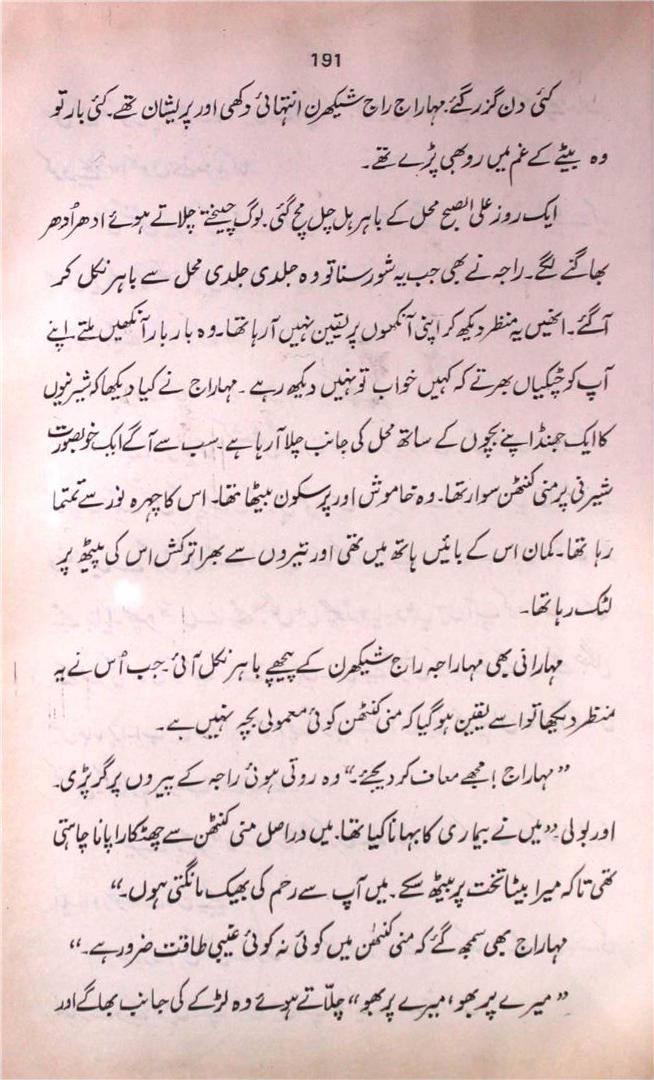 191
کئی دن گزر گئے۔ مہاراج راج شیکھرن انتہائی دکھی اور پریشان تھے۔ کئی بار تو
وہ بیٹے کے غم میں رو بھی پڑے تھے۔
ایک روز علی الصبح محل کے باہر ہل چل مچ گئی۔ لوگ چیختے چلاتے ہوئے ادھر اُدھر
بھاگنے لگے۔ راجہ نے بھی جب یہ شور سنا تو وہ جلدی جلدی محل سے باہر نکل کر
آگئے۔ انھیں یہ منظر دیکھ کر اپنی آنکھوں پر یقین نہیں آرہا تھا۔ وہ بار بار آنکھیں ملتے اپنے
آپ کو چٹکیاں بھرتے کہ کہیں خواب تو نہیں دیکھ رہے۔ مہاراج نے کیا دیکھا کہ شیرنیوں
کا ایک جھنڈ اپنے بچوں کے ساتھ محل کی جانب چلا آرہا ہے۔ سب سے آگے ایک خوبصورت
شیرنی پر منی کنٹھن سوار تھا۔ وہ خاموش اور پرسکون بیٹھا تھا۔ اس کا چہرہ نور سے تمتما
رہا تھا۔ کمان اس کے بائیں ہاتھ میں تھی اور تیروں سے بھرا ترکش اس کی پیٹھ پر
لٹک رہا تھا۔
مہارانی بھی مہاراجہ راج شیکھرن کے پیچھے باہر نکل آئی۔ جب اُس نے یہ
منظر دیکھا تو اسے یقین ہوگیا کہ منی کنٹھن کوئی معمولی بچہ نہیں ہے۔
”مہاراج! مجھے معاف کر دیجئے۔“ وہ روتی ہوئی راجہ کے پیروں پر گر پڑی۔
اور بولی ”میں نے بیماری کا بہانا کیا تھا۔ میں دراصل منی کنٹھن سے چھٹکارا پانا چاہتی
تھی تاکہ میرا بیٹا تخت پر بیٹھ سکے۔ میں آپ سے رحم کی بھیک مانگتی ہوں۔“
مہاراج بھی سمجھ گئے کہ منی کنٹھن میں کوئی نہ کوئی غیبی طاقت ضرور ہے۔“
”میرے پربھو، میرے پربھو“ چلّاتے ہوئے وہ لڑکے کی جانب بھاگے اور